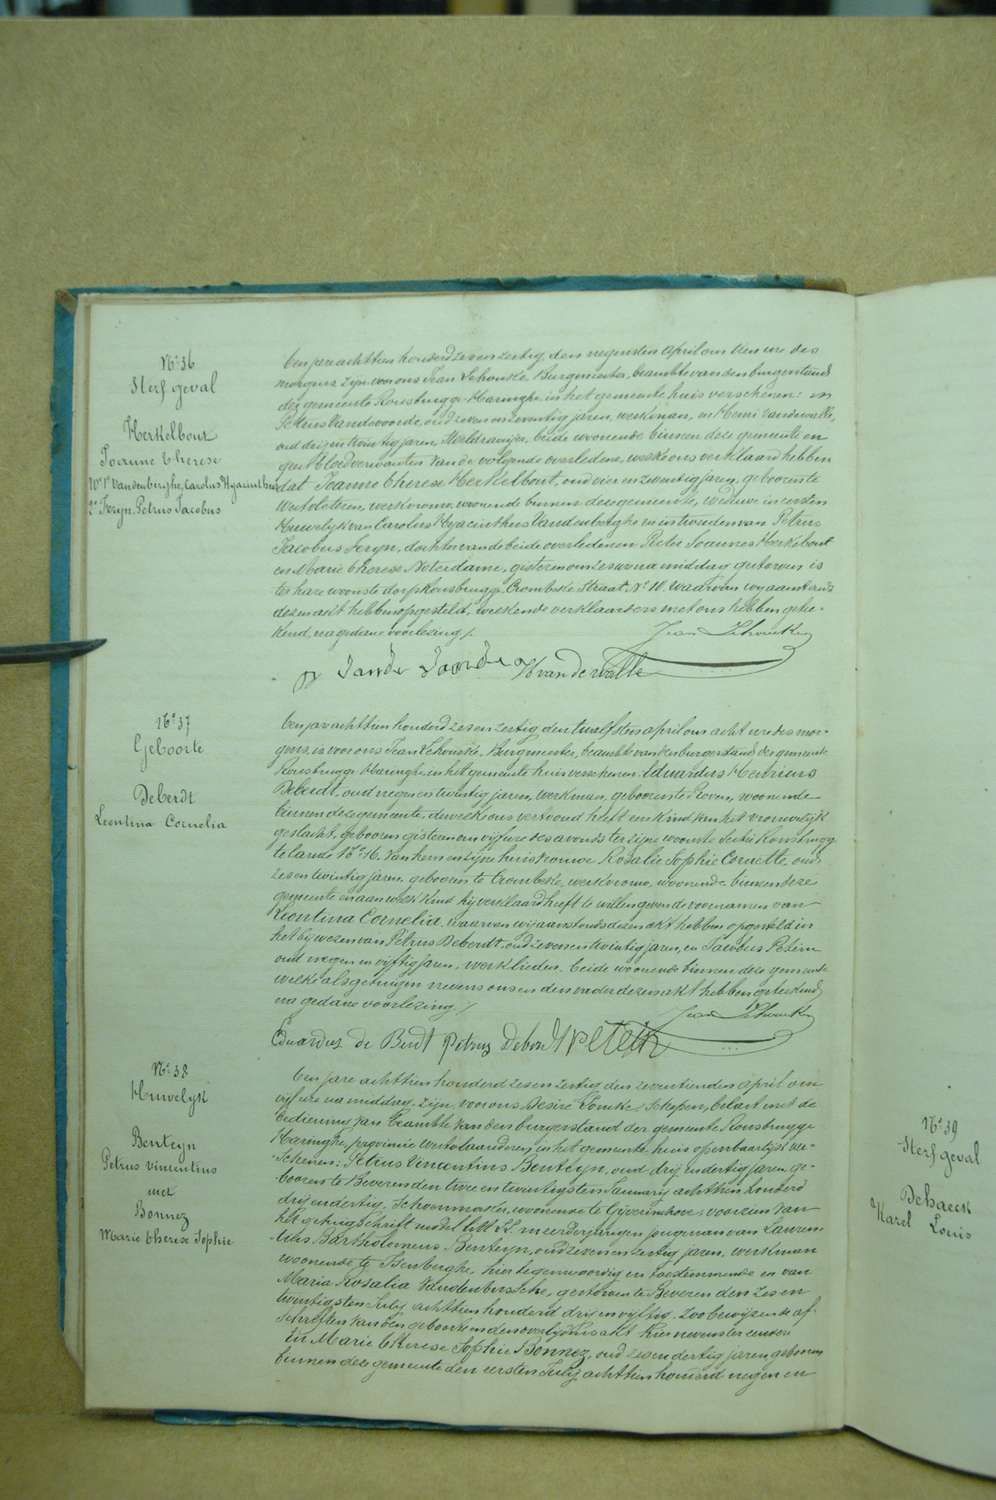 N.º 36
Sterfgeval
Herkelbout
Joanne Therese
W.e 1.º Vandenberghe, Carolus Hyacinthus
2.º Feryn, Petrus Jacobus
Ten jare achttien honderd zes en zestig, den negensten April om tien ure des
morgens zijn voor ons Jean Schoucke, Burgmeester, beambte van den burgerstand
der gemeente Rousbrugge-Haringhe, in het gemeente huis verschenen:
Petrus Vandevoorde, oud zeven en zeventig jaren, werkman, en Henri Vandewalle,
oud drij en twintig jaren, beide woonende binnen deze gemeente en
geen bloedverwanten van de volgende overledene, welke ons verklaard hebben
dat Joanne Therese Herkelbout, oud vier en zeventig jaren, geboren te
Westvleteren, werkvrouw, woonende binnen deze gemeente, weduwe in eersten
Huwelijk van Carolus Hyacinthus Vandenberghe en in tweeden van Petrus
Jacobus Feryn, dochter van de beide overledenen Pieter Joannes Herkelbout
en Marie Therese Noterdame, gisteren om zes ure na middag gestorven is
ter hare woonste dorp Rousbrugge, Crombeke Straat, N.º 10. Waarvan wij aanstonds
dezen akt hebben opgesteld, welken de verklaarders met ons hebben getee-
kend, na gedane voorlezing /.
Jean Schoucke
P Vande Voorde H van de walle
N.º 37
Geboorte
Deberdt
Leontina Cornelia
Ten jare achttien honderd zes en zestig, den twelfsten april om acht ure des mor-
gens, is voor ons Jean Schoucke, Burgmeester, beambte van den burgerstand der gemeente
Rousbrugge Haringhe, in het gemeente huis verschenen Eduardus Henricus
Deberdt, oud negen en twintig jaren, werkman, geboren te Proven, woonende
binnen deze gemeente, dewelke ons vertoond heeft een kind van het vrouwelijk
geslacht, geboren gisteren om vijf ure des avonds ter zijne woonste Sectie Rousbrugg
te lande N.º 16, van hem en zijne huisvrouwe Rosalie Sophie Cornette, oud
zes en twintig jaren, geboren te Crombeke, werkvrouw, woonende binnen deze
gemeente en aan welk kind hij verklaard heeft te willen geven de voornamen van
Leontina Cornelia. Waarvan wij aanstonds dezen akt hebben opgesteld in
het bijwezen van Petrus Deberdt, oud zeven en twintig jaren, en Jacobus Petein
oud negen en vijftig jaren, werklieden, beide woonende binnen deze gemeente
welke als getuigen nevens ons en den vader dezen akt hebben geteekend
na gedane voorlezing /.
Jean Schoucke
Eduardus de Berdt Petrus Deberdt J Petein
N.º 38
Huwelyk
Benteyn
Petrus Vincentius
met
Bonnez
Marie Therese Sophie
Ten jare achttien honderd zes en zestig den zeventienden april om
vijf ure na middag, zijn voor ons Desiré Schepen, belast met de
bediening van beambte van den burgerstand der gemeente Rousbrugge
Haringhe, provincie Westvlaanderen, in het gemeente huis openbaarlijk ver-
schenen: Petrus Vincentius Benteyn, oud drij en dertig jaren, ge-
boren te Beveren den twee en twintigsten January achttien honderd
drij en dertig, Schoenmaker, woonende te Gyverinkhove,
meerderjarigen jongman van Laurens
Bartholomeus Benteyn, oud zeven en zestig jaren, werkman
woonende te Isenberghe, hier tegenwoordig en toestemmende en van
Maria Rosalia Vandenbussche, gestorven te Beveren den zes en
twintigsten July achttien honderd drij en vijftig, zoo bewijzen de af-
schriften van den geboorte en den overlijdens akt
En Marie Therese Sophie Bonnez, oud zes en dertig jaren, geboren
binnen deze gemeente den eersten July achttien honderd negen en
N.º 39
Sterfgeval
Dehaeck
Karel Louis